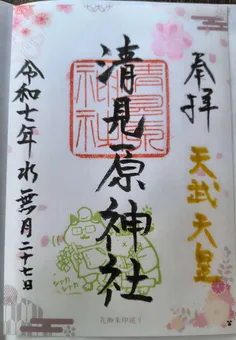 奉拝
天武天皇
清見原神社
清見原
神社
令和七年水無月二十七日
シャカ
シャカ